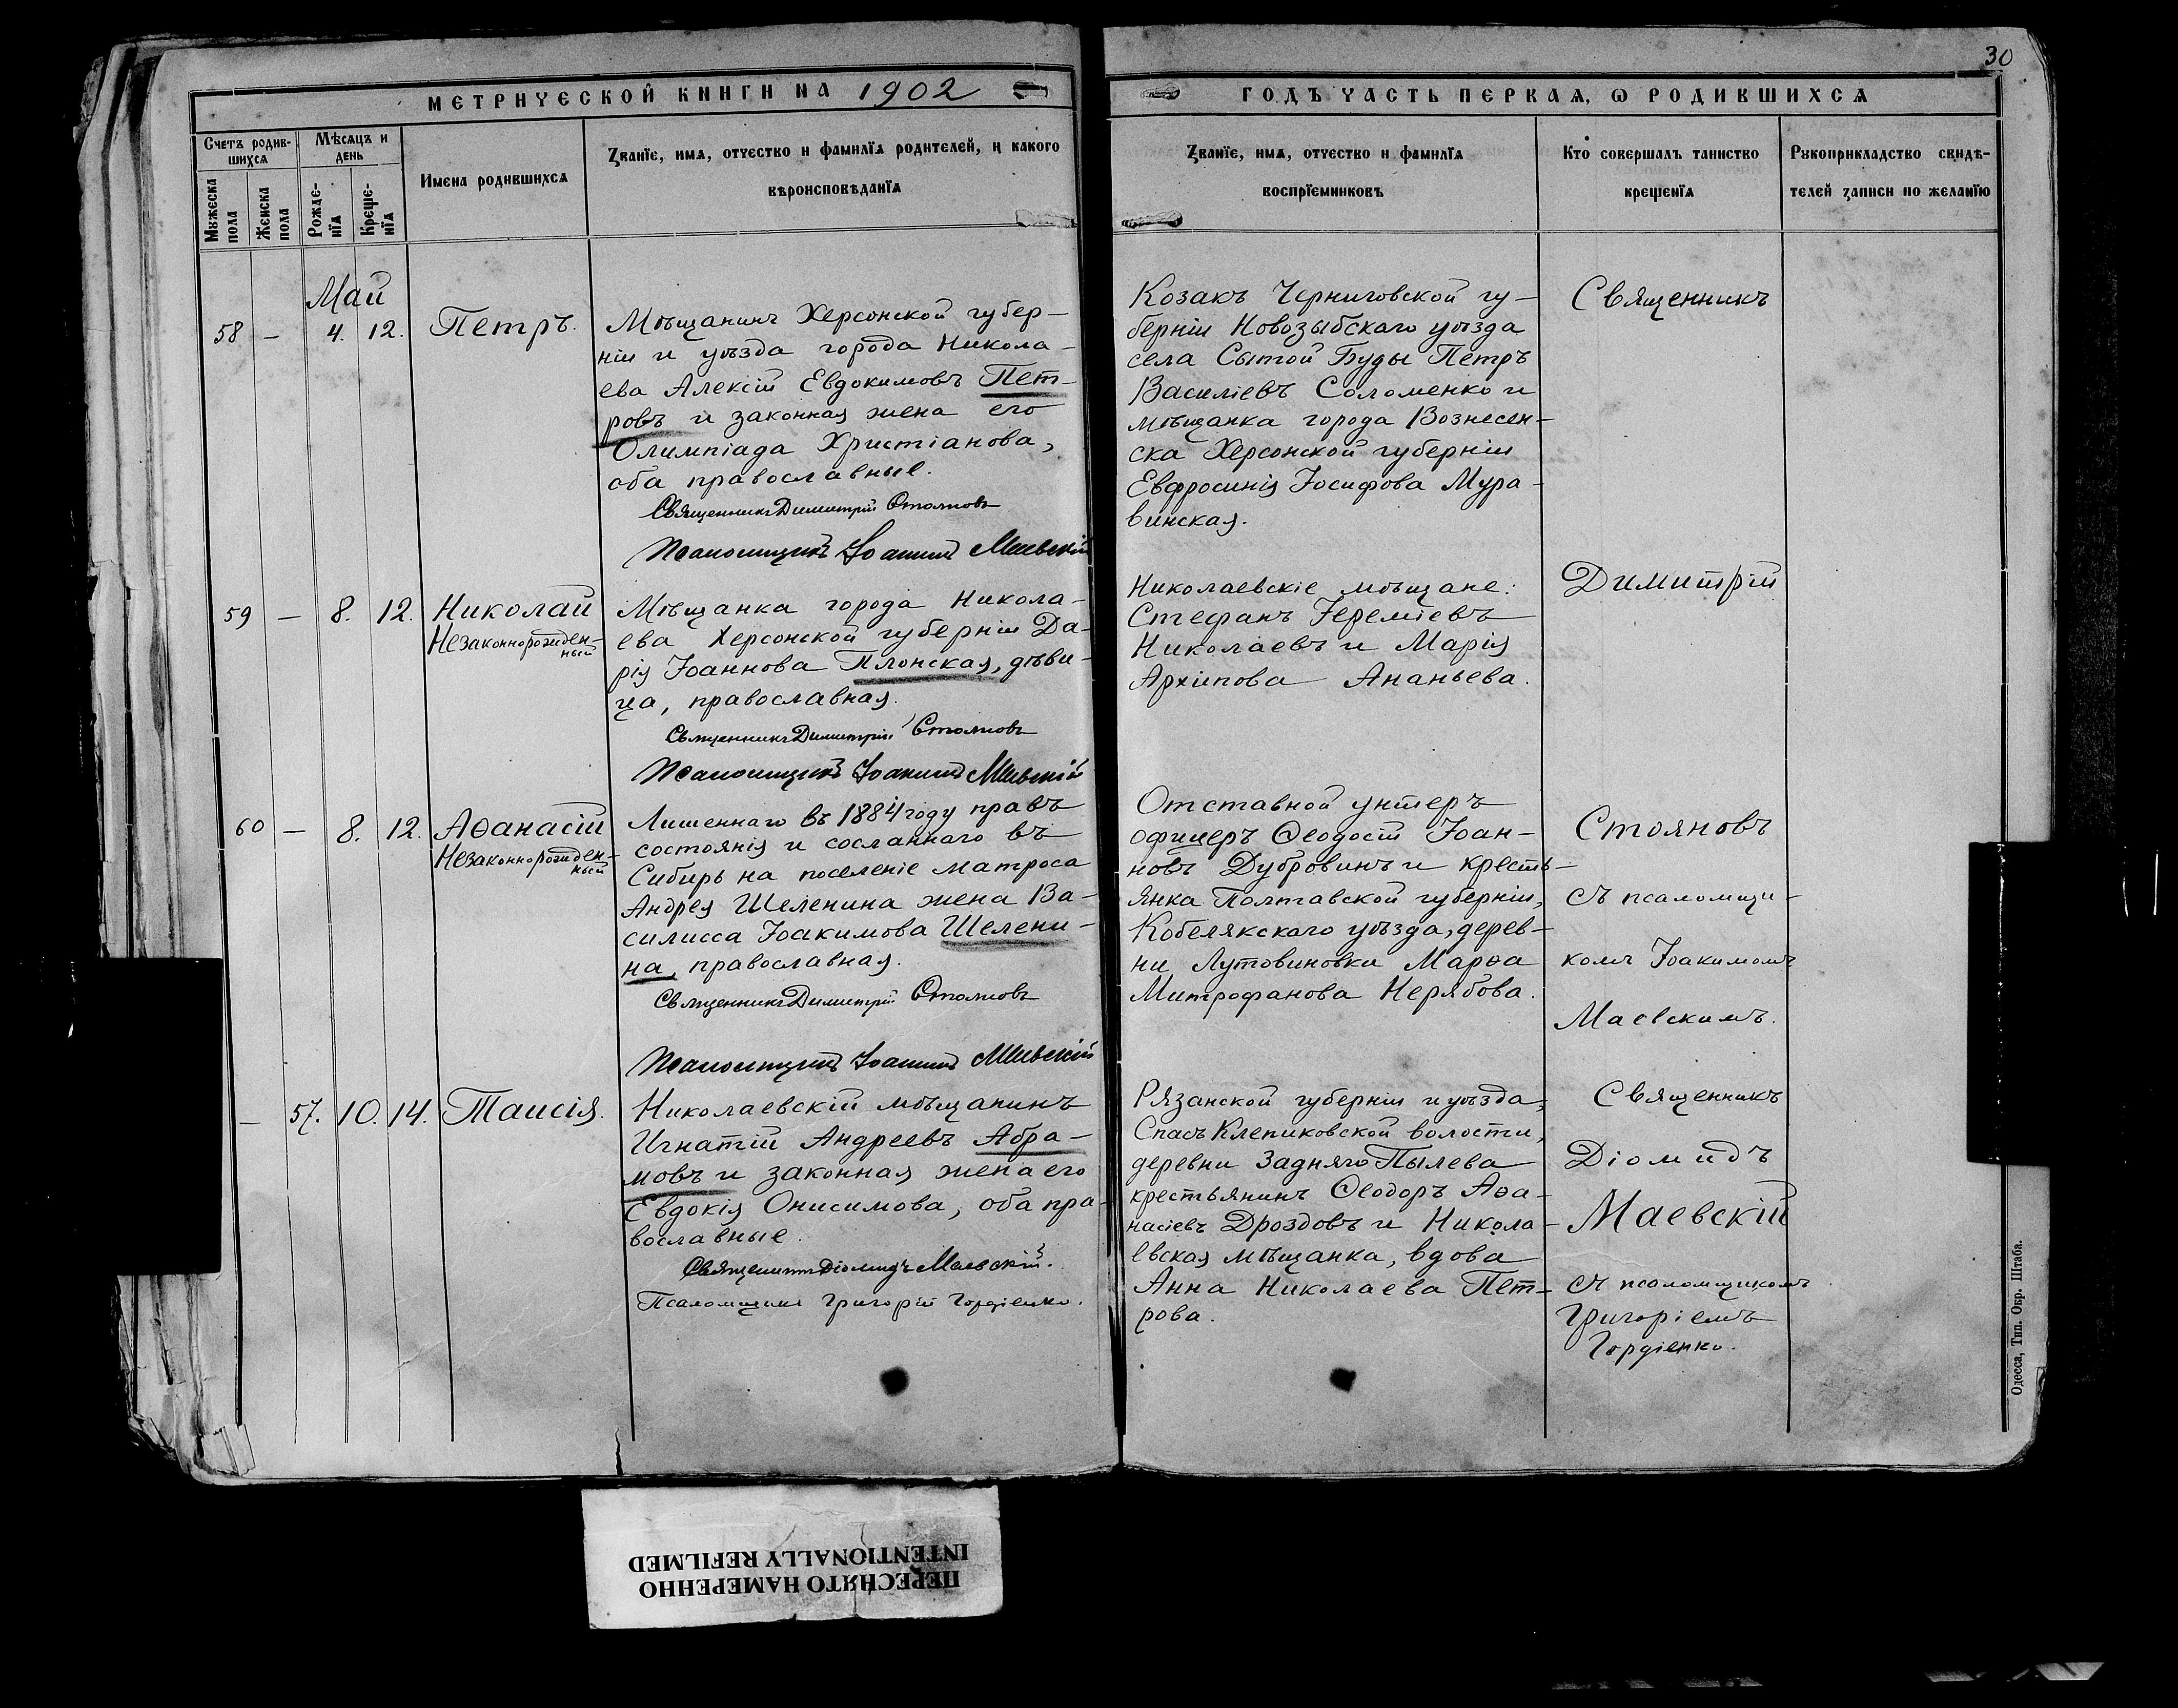 30
МЕТРИЧЕСКОЙ КНИГИ НА 1902
ГОДЪ ЧАСТЬ ПЕРВАЯ, Ѡ РОДИВШИХСЯ
Счетъ родив-
шихся
Мѣсяцъ и
день
Мужеска
пола
Женска
пола
Рожде-
нїя
Креще-
нїя
Имена родившихся
Званїе, имя, отчество и фамилїя родителей, и какого
вѣроисповѣданїя
Званїе, имя, отчество и фамилїя
воспрїемниковъ
Кто совершалъ таинство
крещенїя
Рукоприкладство свидѣ-
телей записи по желанїю
Май
58 — 4. 12. Петръ.
Мѣщанинъ Херсонской губер-
ніи и уѣзда города Никола-
ева Алексій Евдокимовъ Пет-
ровъ и законная жена его
Олимпіада Христіанова,
оба православные.
Священникъ Димитрій Стояновъ
Псаломщикъ Іоакимъ Маевскій
Козакъ Черниговской гу-
берніи Новозыбскаго уѣзда
села Сытой Буды Петръ
Василіевъ Соломенко и
мѣщанка города Вознесен-
ска Херсонской губерніи
Евфросинія Іосифова Мура-
винская.
Священникъ
59 — 8. 12. Николай
Незаконнорожден-
ный
Мѣщанка города Никола-
ева Херсонской губерніи Да-
рія Іоаннова Плонская, дѣви-
ца, православная.
Священникъ Димитрій Стояновъ
Псаломщикъ Іоакимъ Маевскій
Николаевскіе мѣщане:
Стефанъ Іереміевъ
Николаевъ и Марія
Архипова Ананьева.
Димитрій
60 — 8. 12. Аѳанасій
Незаконнорожден-
ный
Лишеннаго въ 1884 году правъ
состоянія и сосланнаго въ
Сибирь на поселеніе матроса
Андрея Шеленина жена Ва-
силисса Іоакимова Шелени-
на, православная.
Священникъ Димитрій Стояновъ
Псаломщикъ Іоакимъ Маевскій
Отставной унтеръ
офицеръ Ѳеодосій Іоан-
новъ Дубровинъ и кресть-
янка Полтавской губерніи,
Кобелякскаго уѣзда, дерев-
ни Лутовиновки Марѳа
Митрофанова Нерябова.
Стояновъ
съ псаломщи-
комъ Іоакимомъ
Маевскимъ.
— 57. 10. 14. Таисія.
Николаевскій мѣщанинъ
Игнатій Андреевъ Абра-
мовъ и законная жена его
Евдокія Онисимова, оба пра-
вославные.
Священникъ Діомидъ Маевскій.
Псаломщикъ Григорій Гордіенко.
Рязанской губерніи и уѣзда,
Спасъ Клепиковской волости,
деревни Задняго Пылева
крестьянинъ Ѳеодоръ Аѳа-
насіевъ Дроздовъ и Никола-
евская мѣщанка, вдова
Анна Николаева Пет-
рова.
Священникъ
Діомидъ
Маевскій
съ псаломщикомъ
Григоріемъ
Гордіенко.
Одесса, Тип. Окр. Штаба.
ПЕРЕСНЯТО НАМЕРЕННО
INTENTIONALLY REFILMED